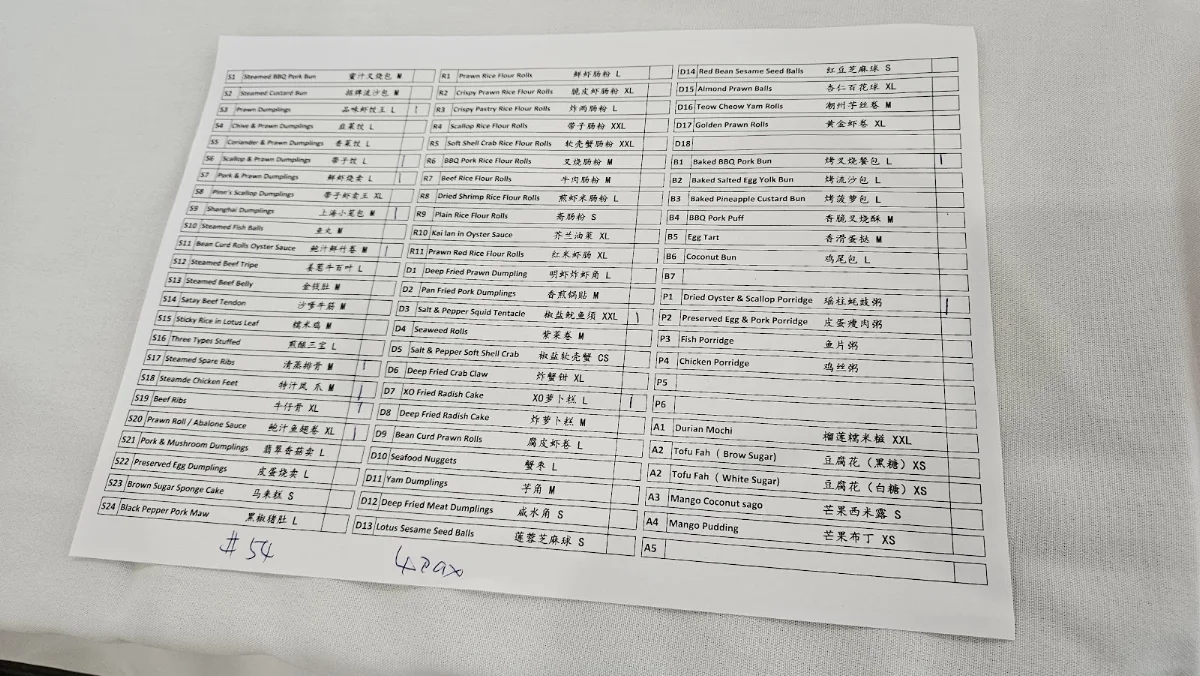 S1 Steamed BBQ Pork Bun 蜜汁叉烧包 M
S2 Steamed Custard Bun 招牌流沙包 M
S3 Prawn Dumplings 品味虾饺王 L |
S4 Chive & Prawn Dumplings 韭菜饺 L
S5 Coriander & Prawn Dumplings 香菜饺 L
S6 Scallop & Prawn Dumplings 带子饺 L |
S7 Pork & Prawn Dumplings 鲜虾烧卖 L |
S8 Pinn's Scallop Dumplings 带子虾卖王 XL
S9 Shanghai Dumplings 上海小笼包 M |
S10 Steamed Fish Balls 鱼丸 M
S11 Bean Curd Rolls Oyster Sauce 鲍汁鲜竹卷 M |
S12 Steamed Beef Tripe 姜葱牛百叶 L
S13 Steamed Beef Belly 金钱肚 M
S14 Satay Beef Tendon 沙嗲牛筋 M
S15 Sticky Rice in Lotus Leaf 糯米鸡 M
S16 Three Types Stuffed 煎酿三宝 L
S17 Steamed Spare Ribs 清蒸排骨 M |
S18 Steamde Chicken Feet 特汁凤 爪 M |
S19 Beef Ribs 牛仔骨 XL |
S20 Prawn Roll / Abalone Sauce 鲍汁鱼翅卷 XL |
S21 Pork & Mushroom Dumplings 翡翠香菇卖 L
S22 Preserved Egg Dumplings 皮蛋烧卖 L
S23 Brown Sugar Sponge Cake 马来糕 S
S24 Black Pepper Pork Maw 黑椒猪肚 L
R1 Prawn Rice Flour Rolls 鲜虾肠粉 L
R2 Crispy Prawn Rice Flour Rolls 脆皮虾肠粉 XL
R3 Crispy Pastry Rice Flour Rolls 炸两肠粉 L
R4 Scallop Rice Flour Rolls 带子肠粉 XXL
R5 Soft Shell Crab Rice Flour Rolls 软壳蟹肠粉 XXL
R6 BBQ Pork Rice Flour Rolls 叉烧肠粉 M
R7 Beef Rice Flour Rolls 牛肉肠粉 M
R8 Dried Shrimp Rice Flour Rolls 煎虾米肠粉 L
R9 Plain Rice Flour Rolls 斋肠粉 S
R10 Kai lan in Oyster Sauce 芥兰油菜 XL
R11 Prawn Red Rice Flour Rolls 红米虾肠 XL
D1 Deep Fried Prawn Dumpling 明虾炸虾角 L
D2 Pan Fried Pork Dumplings 香煎锅贴 M
D3 Salt & Pepper Squid Tentacle 椒盐鱿鱼须 XXL |
D4 Seaweed Rolls 紫菜卷 M
D5 Salt & Pepper Soft Shell Crab 椒盐软壳蟹 CS
D6 Deep Fried Crab Claw 炸蟹钳 XL
D7 XO Fried Radish Cake XO萝卜糕 L |
D8 Deep Fried Radish Cake 炸萝卜糕 M
D9 Bean Curd Prawn Rolls 腐皮虾卷 L
D10 Seafood Nuggets 蟹枣 L
D11 Yam Dumplings 芋角 M
D12 Deep Fried Meat Dumplings 咸水角 S
D13 Lotus Sesame Seed Balls 莲蓉芝麻球 S
D14 Red Bean Sesame Seed Balls 红豆芝麻球 S
D15 Almond Prawn Balls 杏仁百花球 XL
D16 Teow Cheow Yam Rolls 潮州芋丝卷 M
D17 Golden Prawn Rolls 黄金虾卷 XL
D18
B1 Baked BBQ Pork Bun 烤叉烧餐包 L |
B2 Baked Salted Egg Yolk Bun 烤流沙包 L
B3 Baked Pineapple Custard Bun 烤菠萝包 L
B4 BBQ Pork Puff 香脆叉烧酥 M
B5 Egg Tart 香滑蛋挞 M
B6 Coconut Bun 鸡尾包 L
B7
P1 Dried Oyster & Scallop Porridge 瑶柱蚝豉粥 |
P2 Preserved Egg & Pork Porridge 皮蛋瘦肉粥
P3 Fish Porridge 鱼片粥
P4 Chicken Porridge 鸡丝粥
P5
P6
A1 Durian Mochi 榴莲糯米糍 XXL
A2 Tofu Fah ( Brow Sugar) 豆腐花（黑糖）XS
A2 Tofu Fah ( White Sugar) 豆腐花（白糖）XS
A3 Mango Coconut sago 芒果西米露 S
A4 Mango Pudding 芒果布丁 XS
A5
# 54
4 Pax